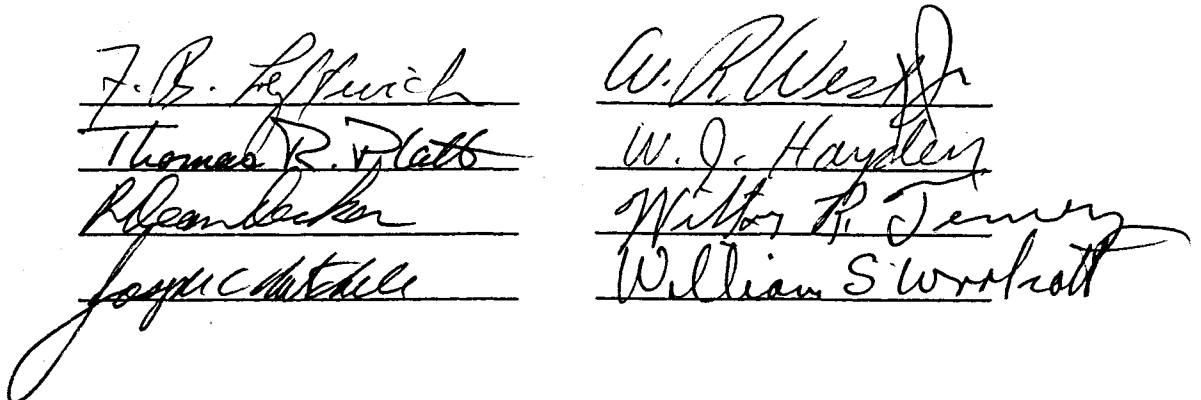 F. B. Leftwich
Thomas R. Platt
R Dean Decker
Joseph C Mitchell
W. R. West Jr
W. J. Hayden
Wilton R. Tenney
William S Woolcott